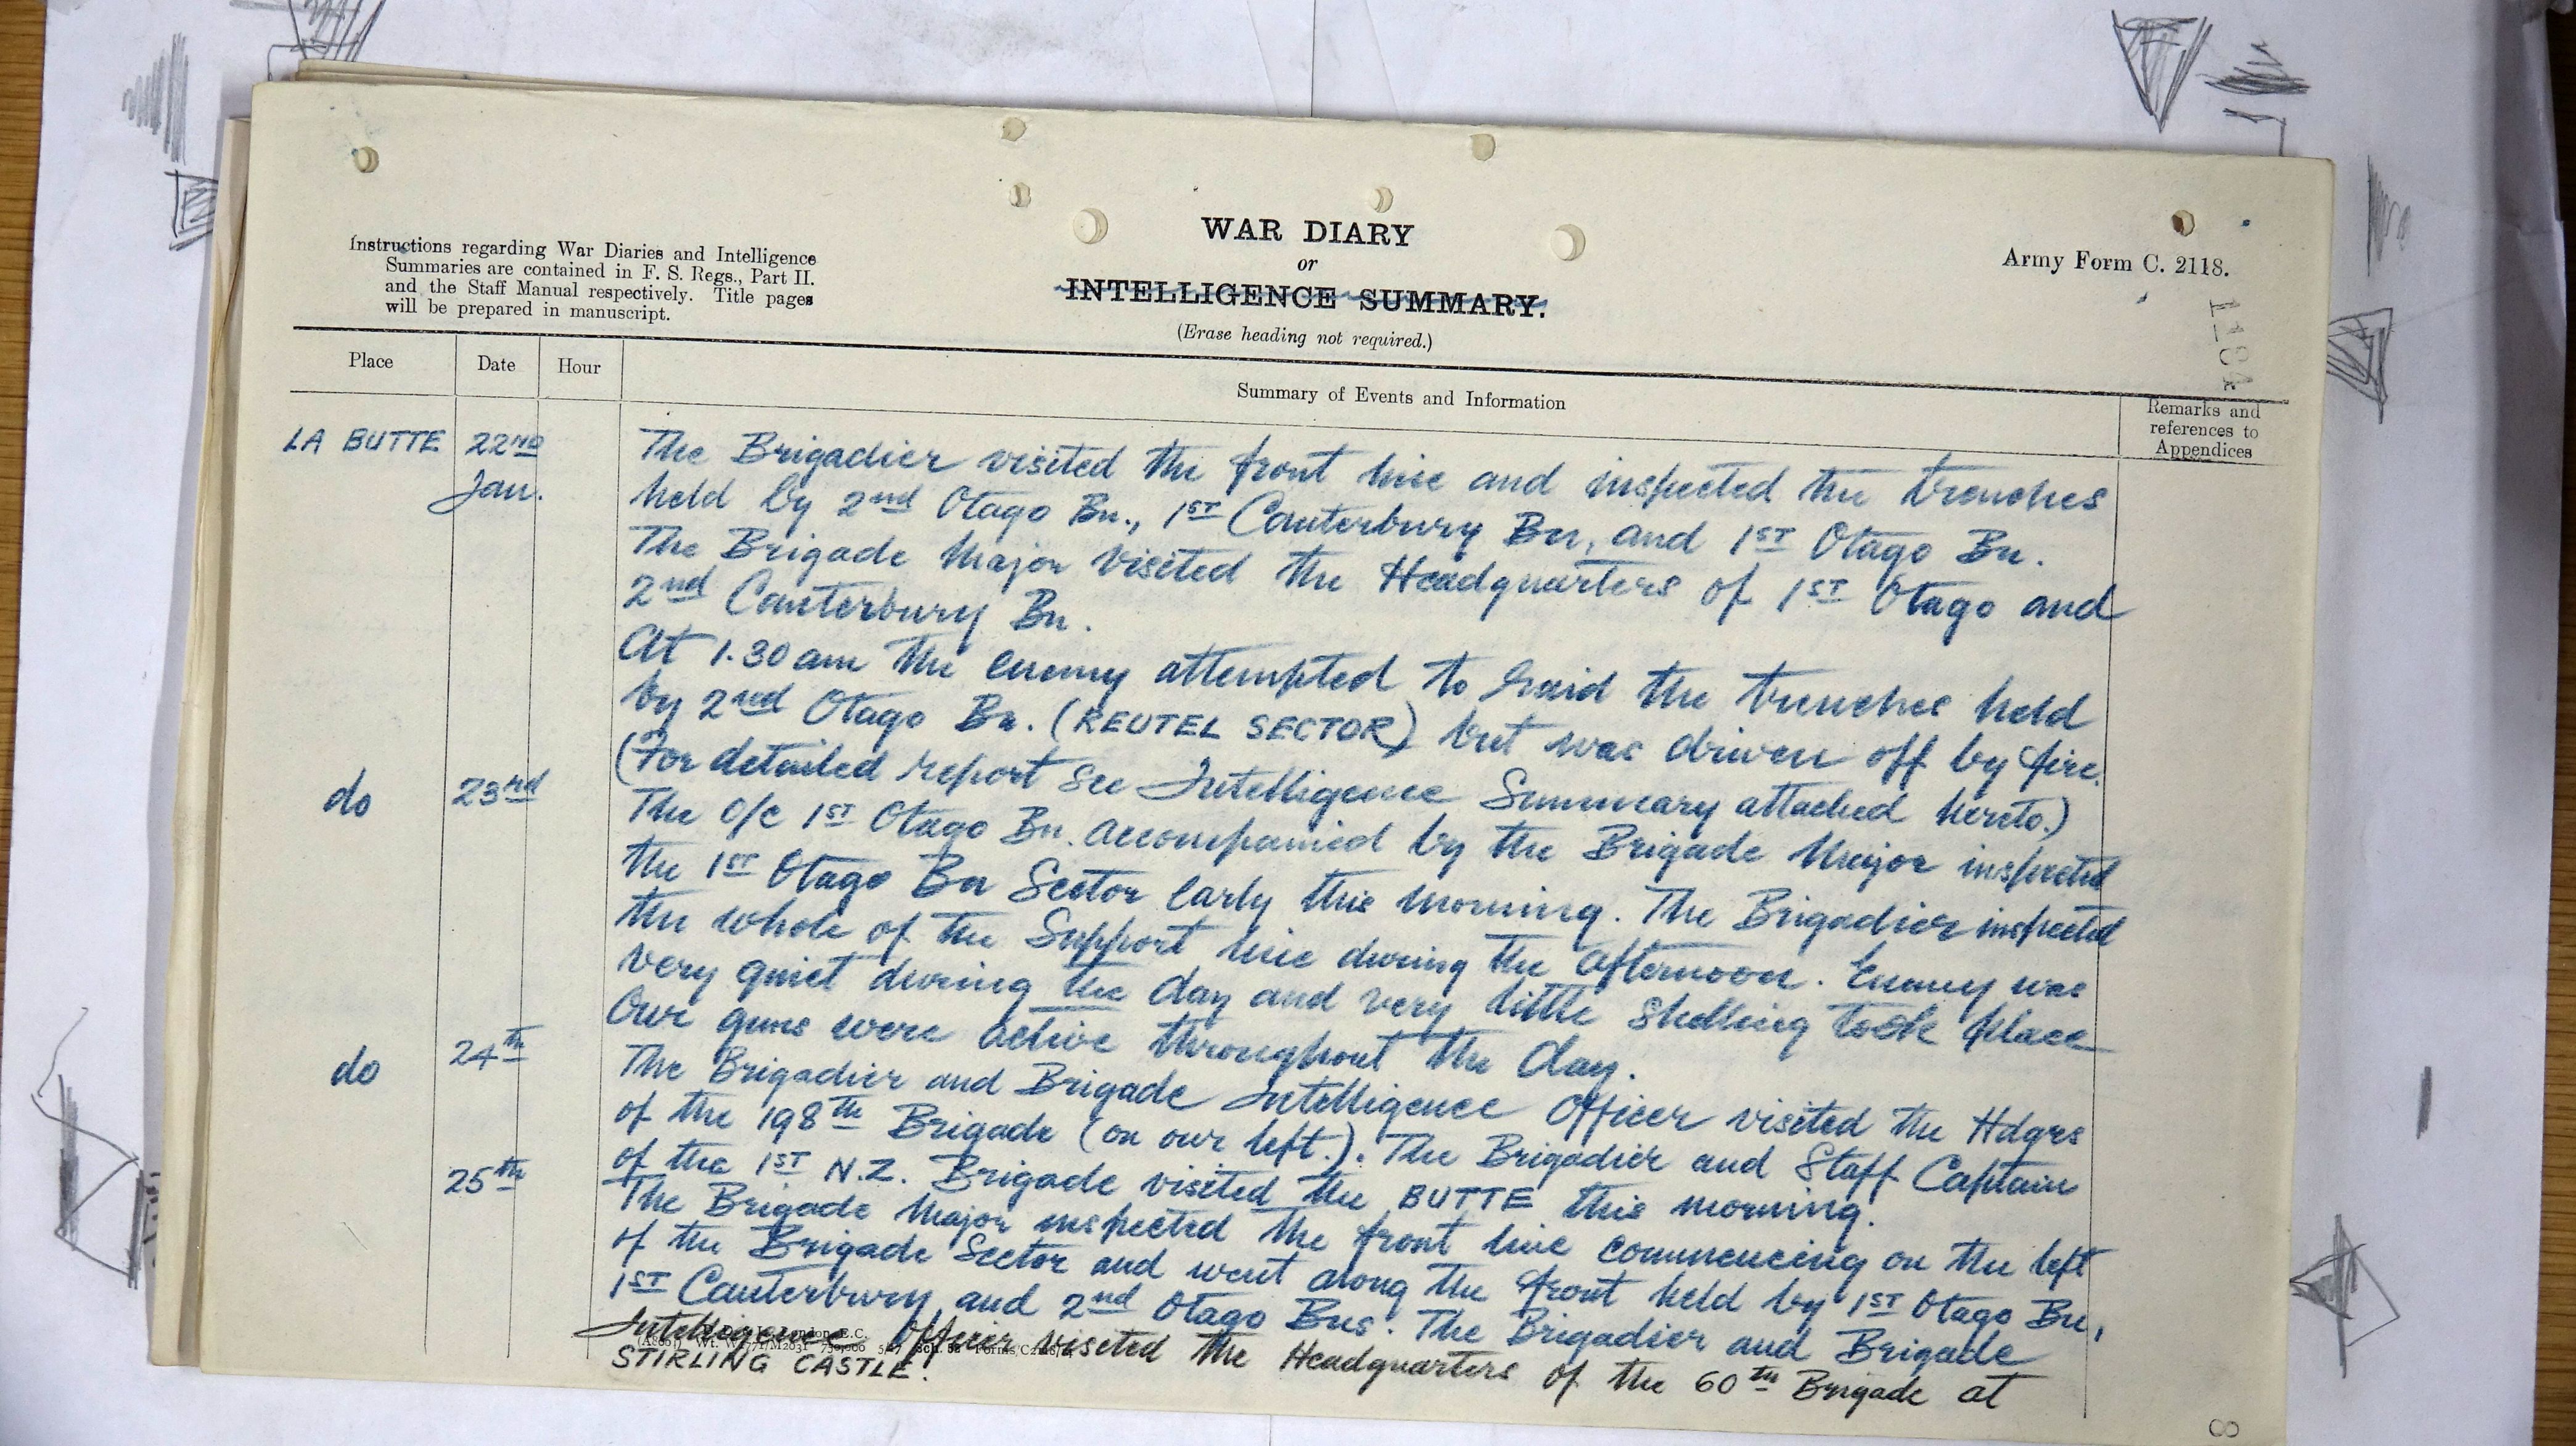 WAR DIARY
or
INTELLIGENCE SUMMARY.
(Erase heading not required.)
Instructions regarding War Diaries and Intelligence
Summaries are contained in F. S. Regs., Part II.
and the Staff Manual respectively. Title pages
will be prepared in manuscript.
Army Form C. 2118.
Place Date Hour Summary of Events and Information
Remarks and
references to
Appendices
LA BUTTE 22nd The Brigadier visited the front line and inspected the trenches
Jan. held by 2nd Otago Bn., 1ST Canterbury Bn, and 1ST Otago Bn.
The Brigade Major visited the Headquarters of 1ST Otago and
2nd Canterbury Bn.
At 1.30 am the enemy attempted to raid the trenches held
by 2nd Otago Bn. (REUTEL SECTOR) but was driven off by fire.
(For detailed report see Intelligence Summary attached hereto.)
do 23rd The O/C 1ST Otago Bn. accompanied by the Brigade Major inspected
the 1ST Otago Bn Sector early this morning. The Brigadier inspected
the whole of the Support line during the afternoon. Enemy was
very quiet during the day and very little shelling took place
Our guns were active throughout the day.
do 24th The Brigadier and Brigade Intelligence Officer visited the Hdqrs
of the 198th Brigade (on our left.). The Brigadier and Staff Captain
of the 1ST N.Z. Brigade visited the BUTTE this morning.
25th The Brigade Major inspected the front line commencing on the left
of the Brigade Sector and went along the front held by 1ST Otago Bn,
1ST Canterbury, and 2nd Otago Bns. The Brigadier and Brigade
Intelligence Officer visited the Headquarters of the 60th Brigade at
STIRLING CASTLE.
8